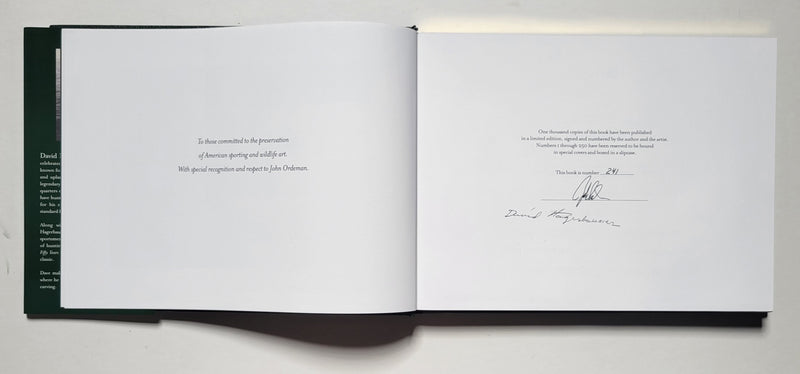 David
celebrate
known fo
and uplan
legendary
quarters o
have hun
for his e
standard l
Along w
Hagerbau
sportsme
of huntin
Fifty Years
classic.
Dave mak
where he
carving.
To those committed to the preservation
of American sporting and wildlife art.
With special recognition and respect to John Ordeman.
One thousand copies of this book have been published
in a limited edition, signed and numbered by the author and the artist.
Numbers 1 through 250 have been reserved to be bound
in special covers and boxed in a slipcase.
This book is number 241
David Hagerbaumer